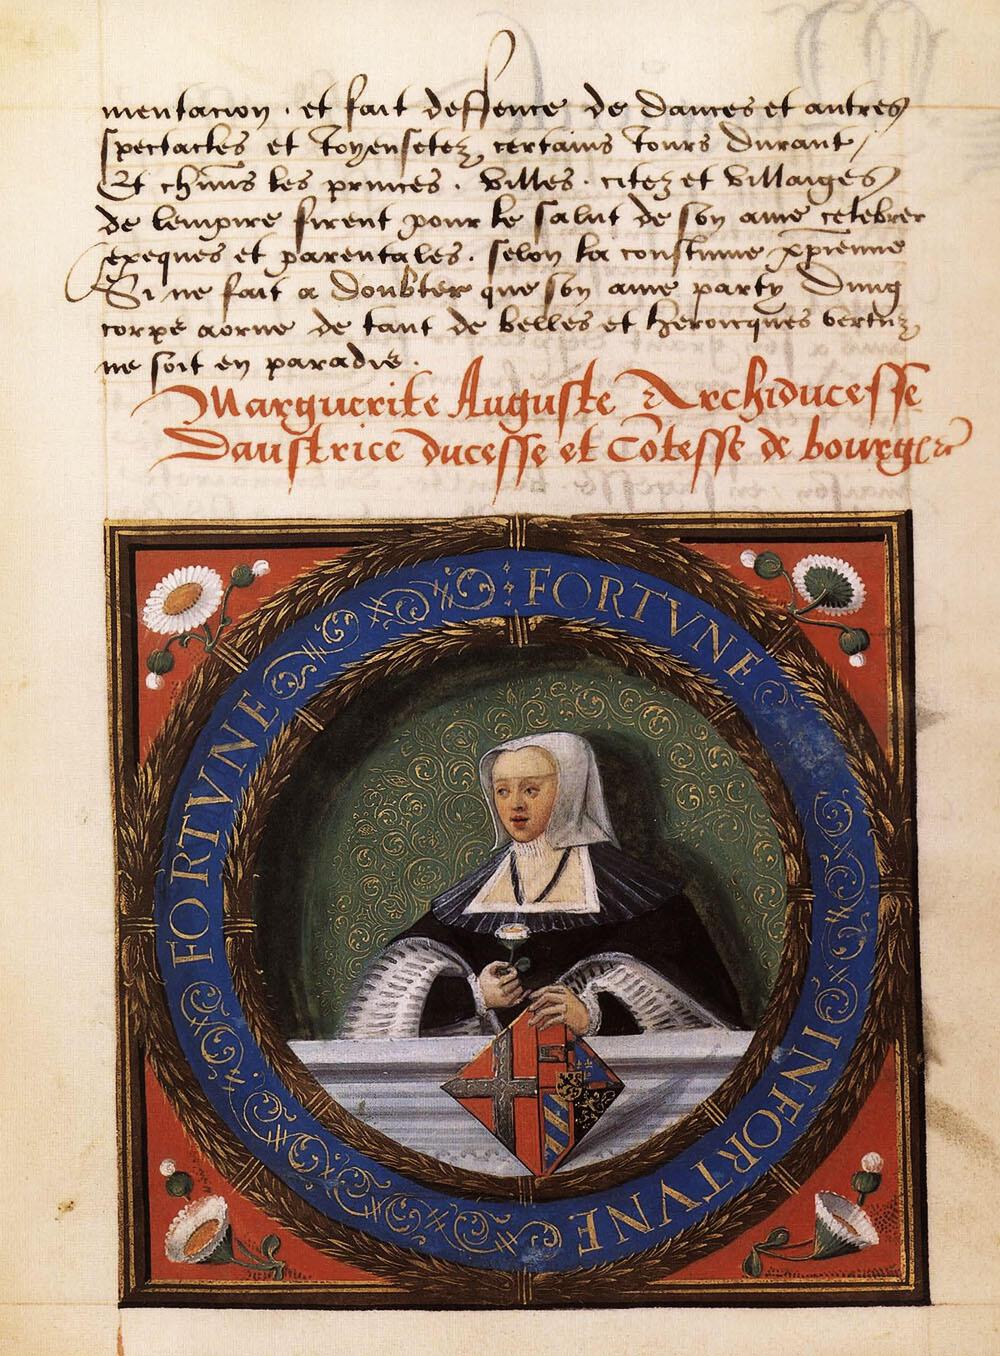 mentacion . et fait deffence de dances et autres
spectacles et Joyensetez certains Jours durant /
Et chũns les princes . villes . citez et villaiges
de lempire firent pour le salut de son ame celebrer
exeques et parentales . selon la constume xp̄ienne
Si ne fait a doubter que son ame party dung
corps aorne de tant de belles et heroicques vertuz
ne soit en paradis .
Marguerite Auguste Archiducesse
Daustrice ducesse et Cõtesse de bourg
FORTVNE
INFORTVNE
FORTVNE